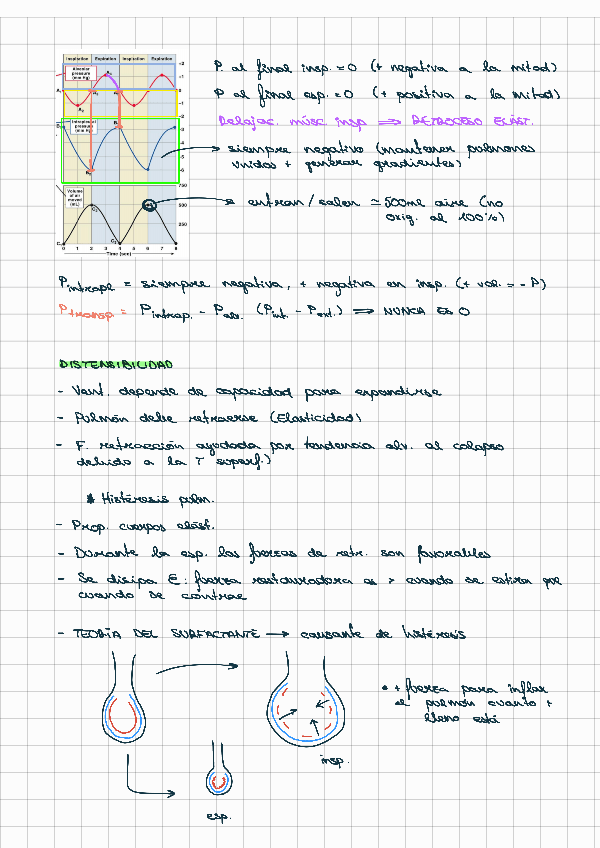 Inspiration Expiration Inspiration Expiration
Alveolar
pressure
(mm Hg)
+2
+1
0
-1
-2
-3
-4
-5
-6
Intrapleural
pressure
(mm Hg)
Volume
of air
moved
(mL)
750
500
250
0 1 2 3 4 5 6 7 8
Time (sec)
P. al final insp. = 0 (+ negativa a la mitad)
P al final esp. = 0 (+ positiva a la mitad)
Relajac. músc insp ⇒ RETROCESO ELÁST.
siempre negativo (mantener pulmones
unidos + generar gradientes)
entran/salen ≃ 500ml aire (no
oxig. al 100%)
Pintrapl = siempre negativa, + negativa en insp. (+ vol. = - P)
Ptransp = Pintrap. - Palv. (Pint. - Pext.) ⇒ NUNCA ES 0
DISTENSIBILIDAD
- Vent. depende de capacidad para expandirse
- Pulmón debe retraerse (Elasticidad)
- F. retracción ayudada por tendencia alv. al colapso
debido a la T superf.)
* Histéresis pulm.
- Prop. cuerpos elást.
- Durante la esp. las fuerzas de retr. son favorables
- Se disipa E: fuerza restauradora es > cuando se estira que
cuando se contrae
- TEORÍA DEL SURFACTANTE → causante de histéresis
• + fuerza para inflar
el pulmón cuanto +
lleno está
insp.
esp.